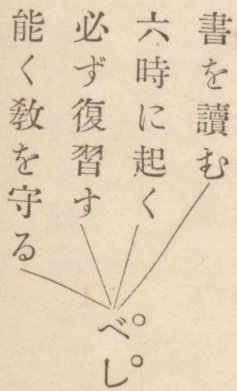 書を讀む
六時に起く
必ず復習す
能く敎を守る
べし